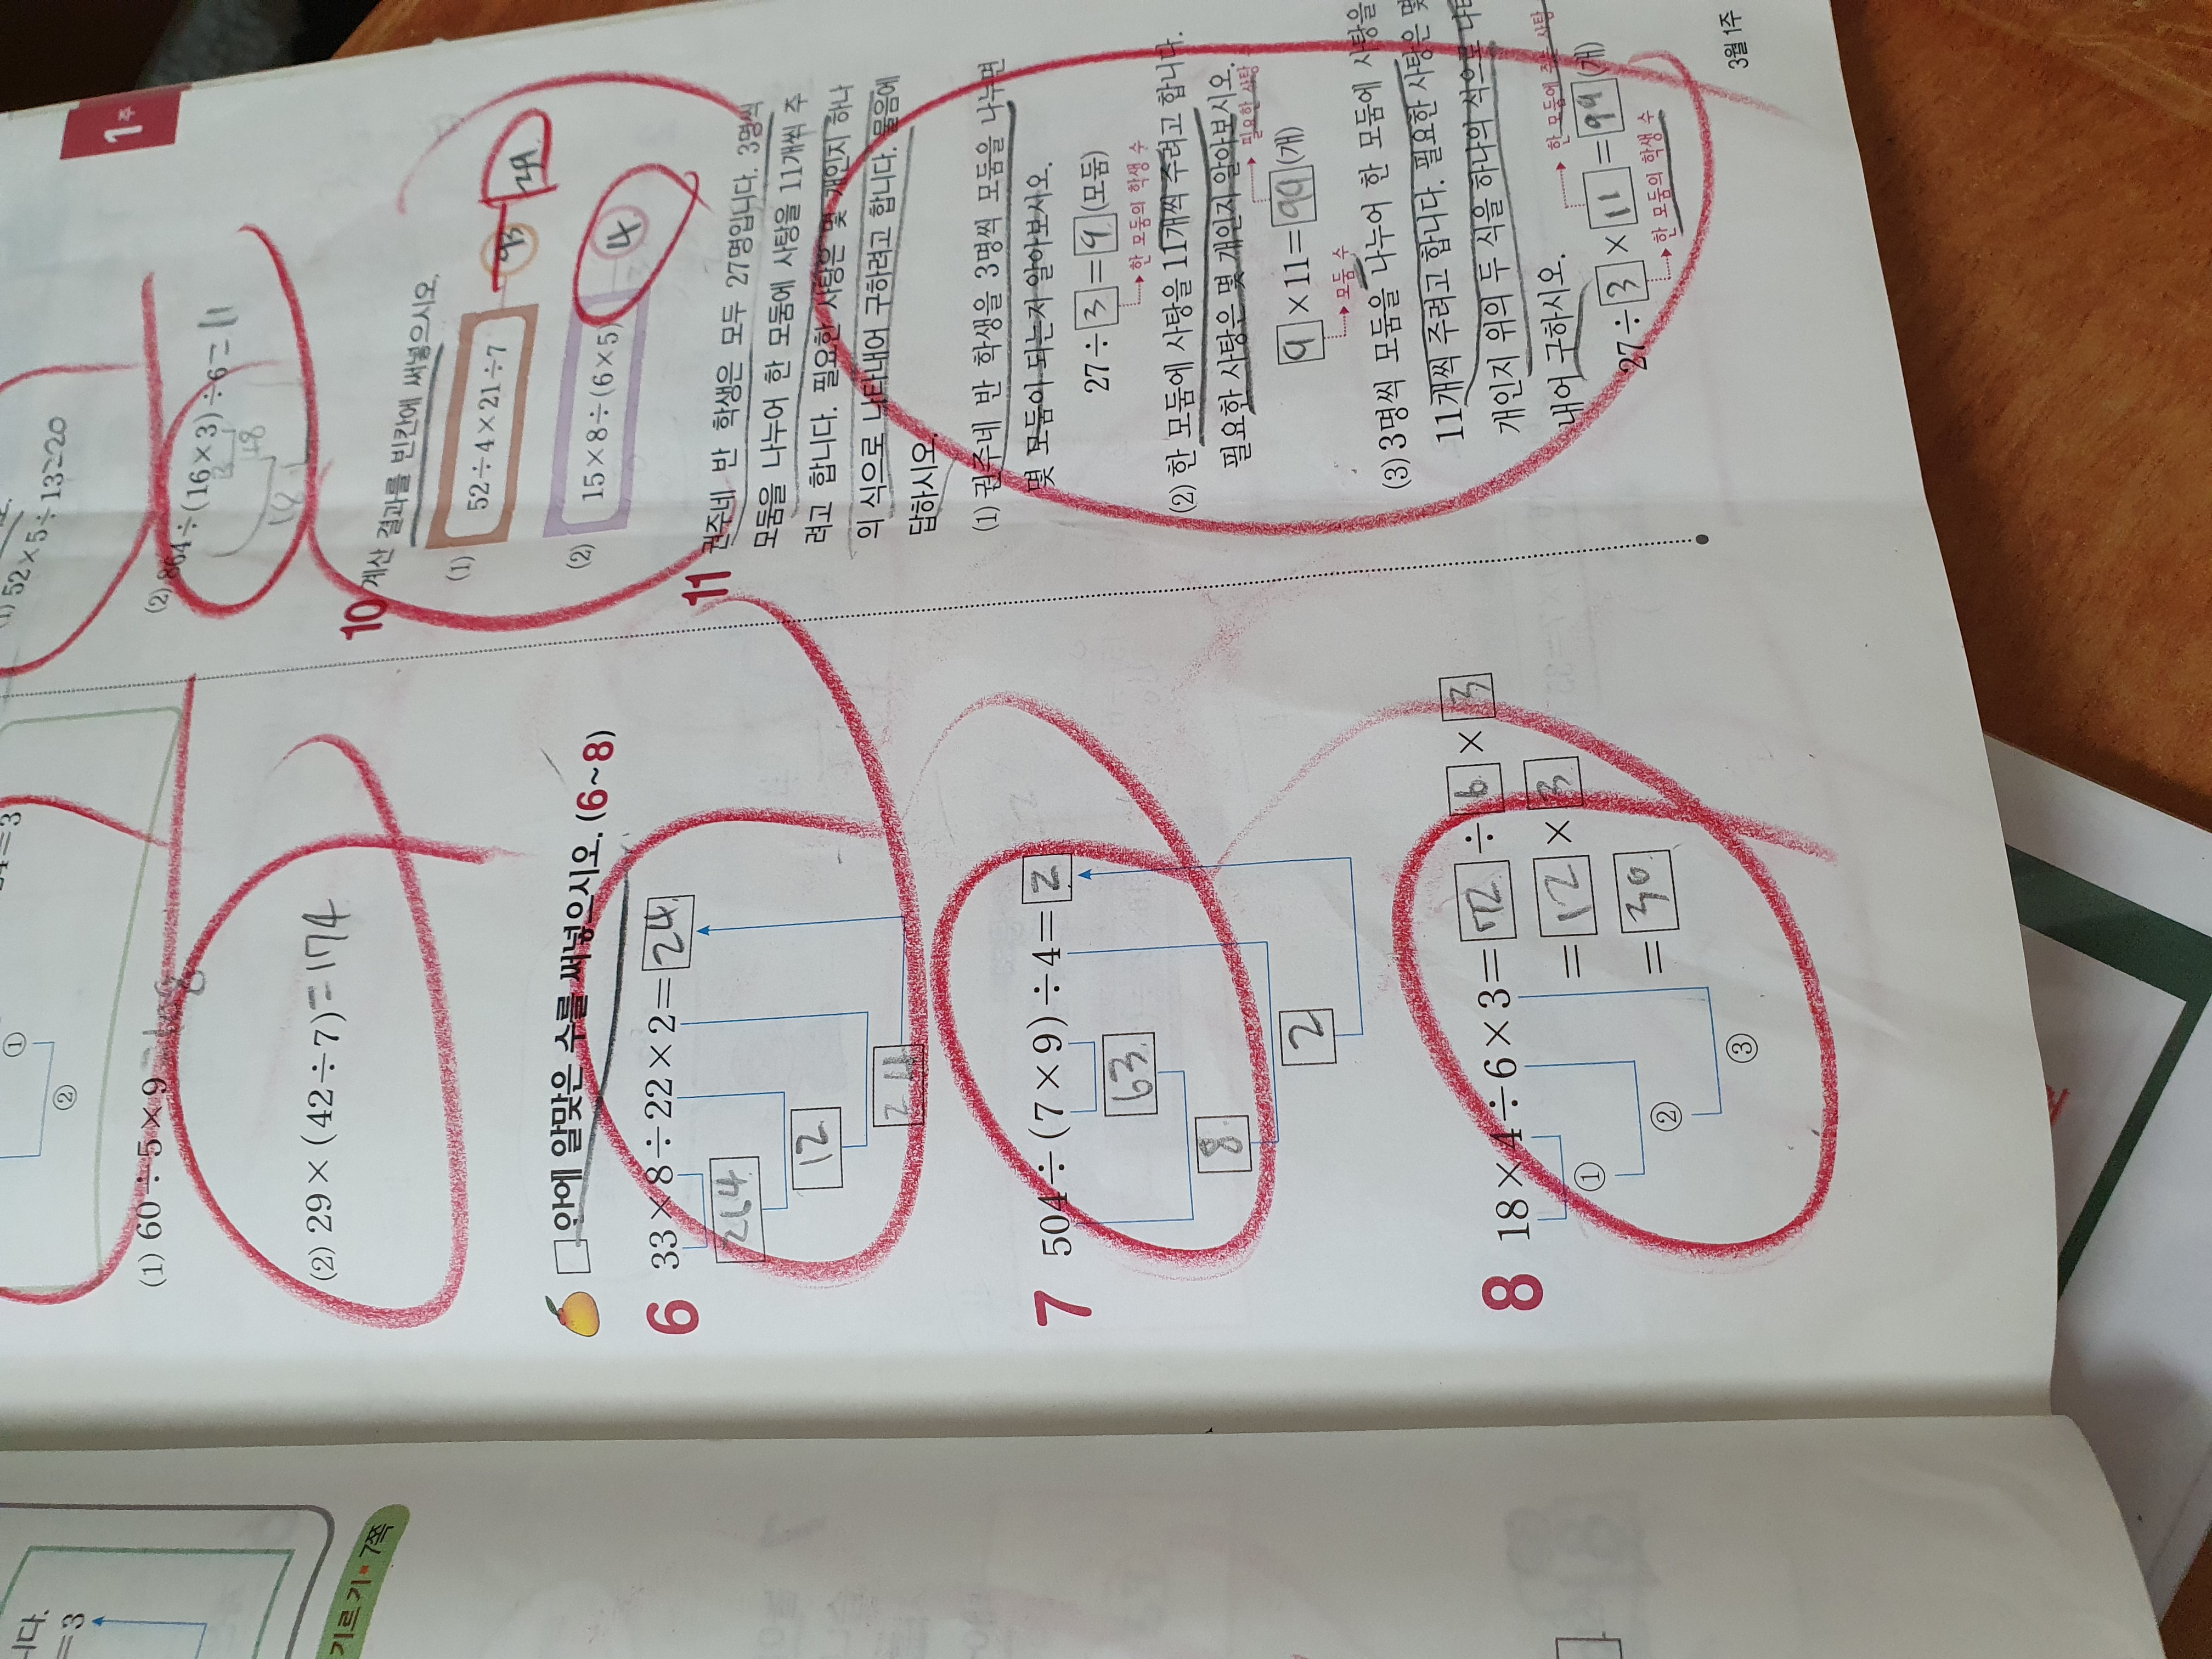 니다.
=3
기르기 7쪽
①
②
(1) 60÷5×9
(2) 29×(42÷7)=174
□안에 알맞은 수를 써넣으시오. (6~8)
6 33×8÷22×2=24
264
12
24
7 504÷(7×9)÷4=2
63
8
2
8 18×4÷6×3=72÷6×3
=12×3
=30
①
②
③
1주
(1) 52×5÷13=20
(2) 864÷(16×3)÷6=11
48
18
10 계산 결과를 빈칸에 써넣으시오.
(1) 52÷4×21÷7
(2) 15×8÷(6×5) 4
11 권주네 반 학생은 모두 27명입니다. 3명씩
모둠을 나누어 한 모둠에 사탕을 11개씩 주
려고 합니다. 필요한 사탕은 몇 개인지 하나
의 식으로 나타내어 구하려고 합니다. 물음에
답하시오.
(1) 권주네 반 학생을 3명씩 모둠을 나누면
몇 모둠이 되는지 알아보시오.
27÷3=9(모둠)
한 모둠의 학생 수
(2) 한 모둠에 사탕을 11개씩 주려고 합니다.
필요한 사탕은 몇 개인지 알아보시오.
필요한 사탕
9×11=99(개)
모둠 수
(3) 3명씩 모둠을 나누어 한 모둠에 사탕을
11개씩 주려고 합니다. 필요한 사탕은 몇
개인지 위의 두 식을 하나의 식으로 나타
내어 구하시오.
한 모둠에 주는 사탕
27÷3×11=99(개)
한 모둠의 학생 수
3월 1주